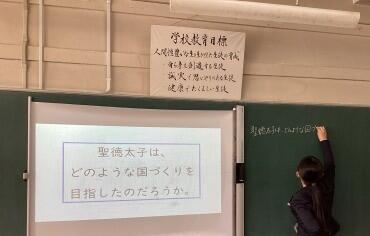 学校教育目標
人間性豊かな生きがいある生徒の育成
自ら考え創造する生徒
誠実で思いやりのある生徒
健康でたくましい生徒
聖徳太子は、
どのような国づくりを
目指したのだろうか。
聖徳太子は、どのような国づ